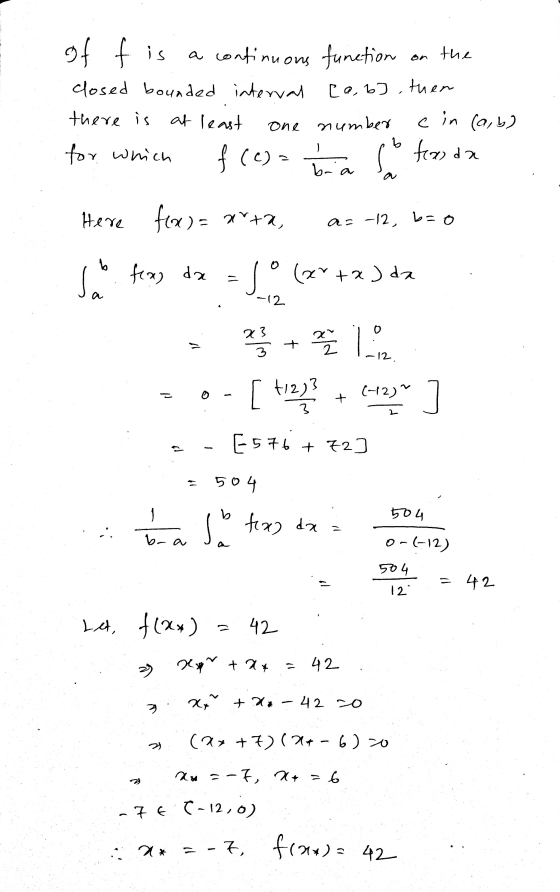 If f is a continuous function on the
closed bounded interval [a,b], then
there is at least one number c in (a,b)
for which f(c) = 1/(b-a) ∫_a^b f(x) dx
Here f(x) = x² + x, a = -12, b = 0
∫_a^b f(x) dx = ∫_{-12}^0 (x² + x) dx
= x³/3 + x²/2 |_{-12}^0
= 0 - [ (-12)³/3 + (-12)²/2 ]
= - [-576 + 72]
= 504
∴ 1/(b-a) ∫_a^b f(x) dx = 504/(0-(-12))
= 504/12 = 42
Let, f(x*) = 42
⇒ x*² + x* = 42
⇒ x*² + x* - 42 = 0
⇒ (x* + 7)(x* - 6) = 0
⇒ x* = -7, x* = 6
-7 ∈ (-12, 0)
∴ x* = -7, f(x*) = 42